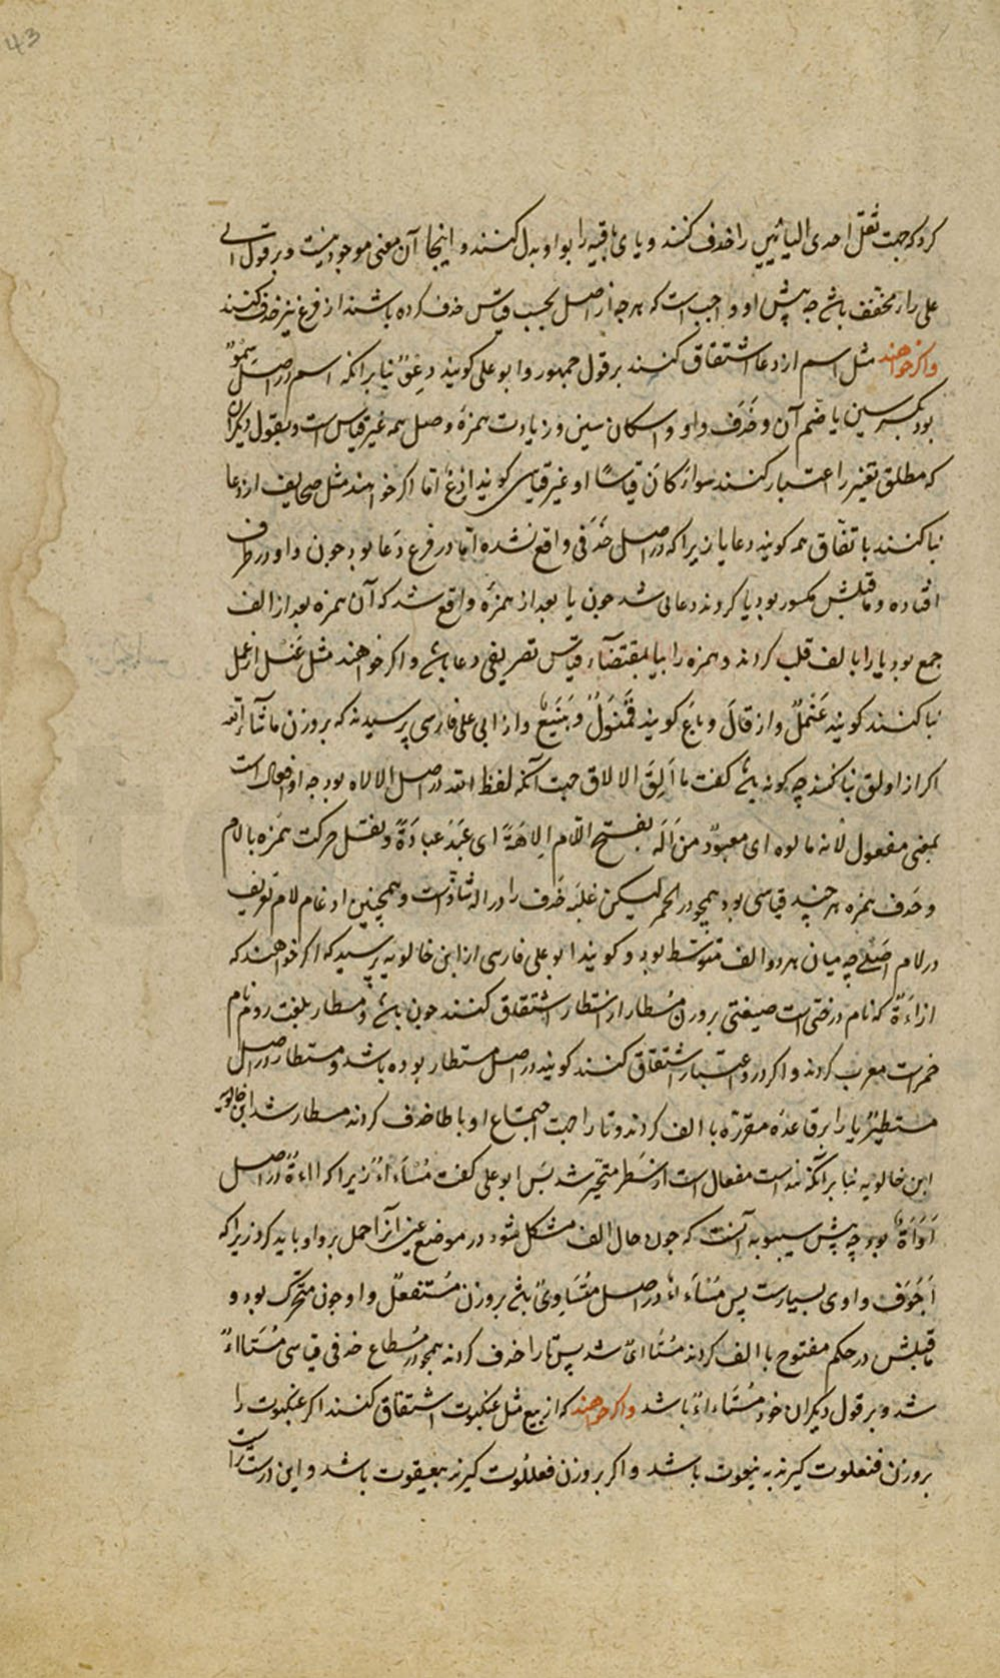 43
کرد که جهت ثقل احدی الیائین را حذف کنند و یای باقیه را بواو بدل کنند و اینجا آن معنی موجود نیست و بر قول ابی
علی را مخفف باشد چه پیش او واجب است که هر چه از اصل بحسب قیاس حذف کرده باشند از فرع نیز حذف کنند
واکر خواهند مثل اسم از دعا اشتقاق کنند بر قول جمهور و ابو علی کویند دِعْوٌ بنا بر آنکه اسم در اصل سِمْوٌ
بود بکسر سین یا ضم آن و حَذف واو و اسکان سین و زیادت همزهٔ وصل همه غیر قیاس است و بقول دیکران
که مطلق تغییر را اعتبار کنند سواءٌ کانَ قیاسًا او غیر قیاسی کویند اِدْعٌ اما اکر خواهند مثل صحایف از دعا
بنا کنند باتفاق همه کویند دعایا زیرا که در اصل حَذفی واقع نشده اما در فرع دَعا بود جون واو در طرف
افتاده و ماقبلش مکسور بود یا کردند دعائی شد جون یا بعد از همزه واقع شد که آن همزه بعد از الف
جمع بود یا را بالف قلب کردند و همزه را بیا بمقتضاء قیاس تصریفی دعایا باشد و اکر خواهند مثل عَنْسَل از عمل
بنا کنند کویند عَنْمَلٌ و از قالَ و باعَ کویند قَنْوَلٌ و بَنْیَعٌ و از ابی علی فارسی پرسیدند که بر وزن ماشآء الله
اکر از اولق بنا کنند چه کونه باشد کفت ما اَلِقَ الالاق جهت آنکه لفظ الله در اصل الالاه بود چه او فعال است
بمعنی مفعول لانه مالوه ای معبودٌ من اَلَهَ بفتح اللام اِلاهَةً ای عَبَدَ عبادَةً و نقل حرکت همزه بالام
و حَذف همزه هر چند قیاسی بود همچو در الحمر لیکن غلبهٔ حَذف را در اله شاذ است و همچنین ادغام لام تعریف
در لام اصلی چه میان هر دو الف متوسط بود و کویند ابو علی فارسی از ابن خالویه پرسید که اکر خواهند که
از اٰءَةٌ که نام درختی است صیغتی بر وزن مُسْطار از استطار اشتقاق کنند جون باشد و مسطار بلغت روم نام
خمرست معرب کردند و اکر در و اعتبار اشتقاق کنند کویند در اصل مستطار بوده باشد و مستطار در اصل
مستطیَرٌ یا را بر قاعدهٔ مقرره با الف کردند و تا را جهت اجتماع او با طا حذف کردند مسطار شد ابن خالویه
ابن خالویه بنا بر آنکه مفعال است از سَطر متحیر شد پس ابو علی کفت مُسْآءٌ زیرا که اٰءَةٌ در اصل
اَوَاَةٌ بود چه پیش سیبویه آنست که جون حال الف مشکل شود در موضع عین آنرا حمل بر واو باید کرد زیرا که
اَجْوَف واوی بسیارست پس مُسْآءٌ در اصل مُسْتَاْوَءٌ باشد بر وزن مُسْتَفعَلٌ واو جون متحرک بود و
ماقبلش در حکم مفتوح با الف کردند مُسْتَآءٌ شد پس تا را حذف کردند همچو در مُسْطاع حذفی قیاسی مُسَآءٌ
شد و بر قول دیکران خود مُسْتَآءٌ باشد واکر خواهند که از بیع مثل عنکبوت اشتقاق کنند اکر عنکبوت را
بر وزن فنعلوت کیرند بنیعوت باشد و اکر بر وزن فعللُوت کیرند بیععوت باشد و این درست تر است